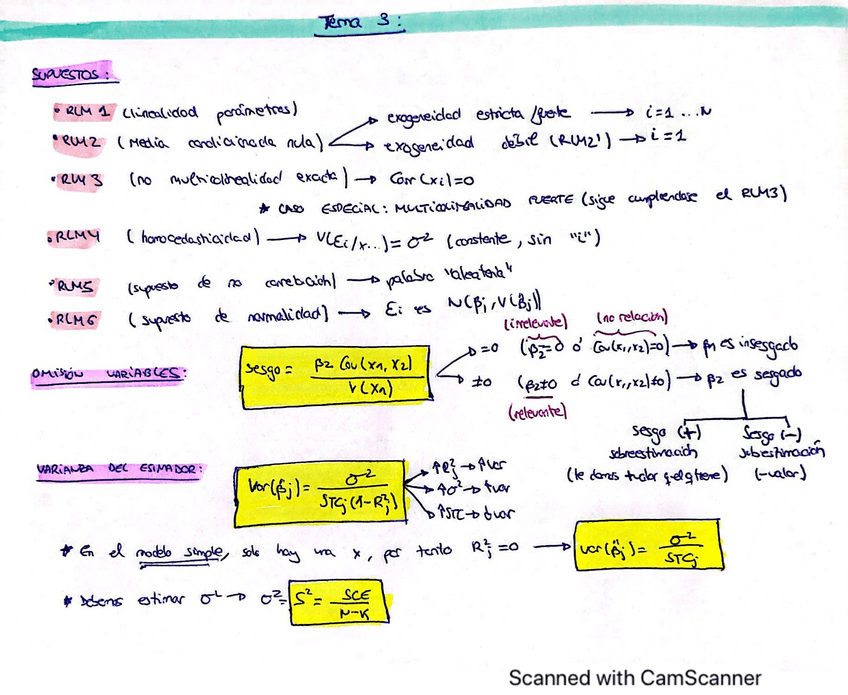 Tema 3:
SUPUESTOS:
• RLM 1 (linealidad parámetros)
• RLM2 (Media condicionada nula) → exogeneidad estricta/fuerte → i=1 ... N
→ exogeneidad débil (RLM2') → i=1
• RLM 3 (no multicolinealidad exacta) → Corr(xi)=0
* CASO ESPECIAL: MULTICOLINEALIDAD FUERTE (sigue cumpliendose el RLM3)
• RLM4 (homocedasticidad) → V(Ei/x...) = σ² (constante, sin "i")
• RLM5 (supuesto de no correlación) → palabra "aleatoria"
• RLM6 (supuesto de normalidad) → Ei es N(βj, V(βj))
OMISIÓN VARIABLES:
sesgo = β2 Cov(x1, x2) / V(x1)
(irrelevante) (no relación)
→ =0 (β2=0 ó Cov(x1,x2)=0) → β1 es insesgado
→ ≠0 (β2≠0 Cov(x1,x2)≠0) → β2 es sesgado
(relevante)
Sesgo (+) Sesgo (-)
sobreestimación subestimación
(le damos + valor q el q tiene) (-valor)
VARIANZA DEL ESIMADOR:
Var(β̂j) = σ² / STCj (1-R²j)
→ ↑R²j → ↑var
→ ↑σ² → ↑var
→ ↑STC → ↓var
* En el modelo simple, solo hay una x, por tanto R²j =0 → var(β̂j) = σ² / STCj
* Debemos estimar σ² → σ² = S² = SCE / N-K
Scanned with CamScanner